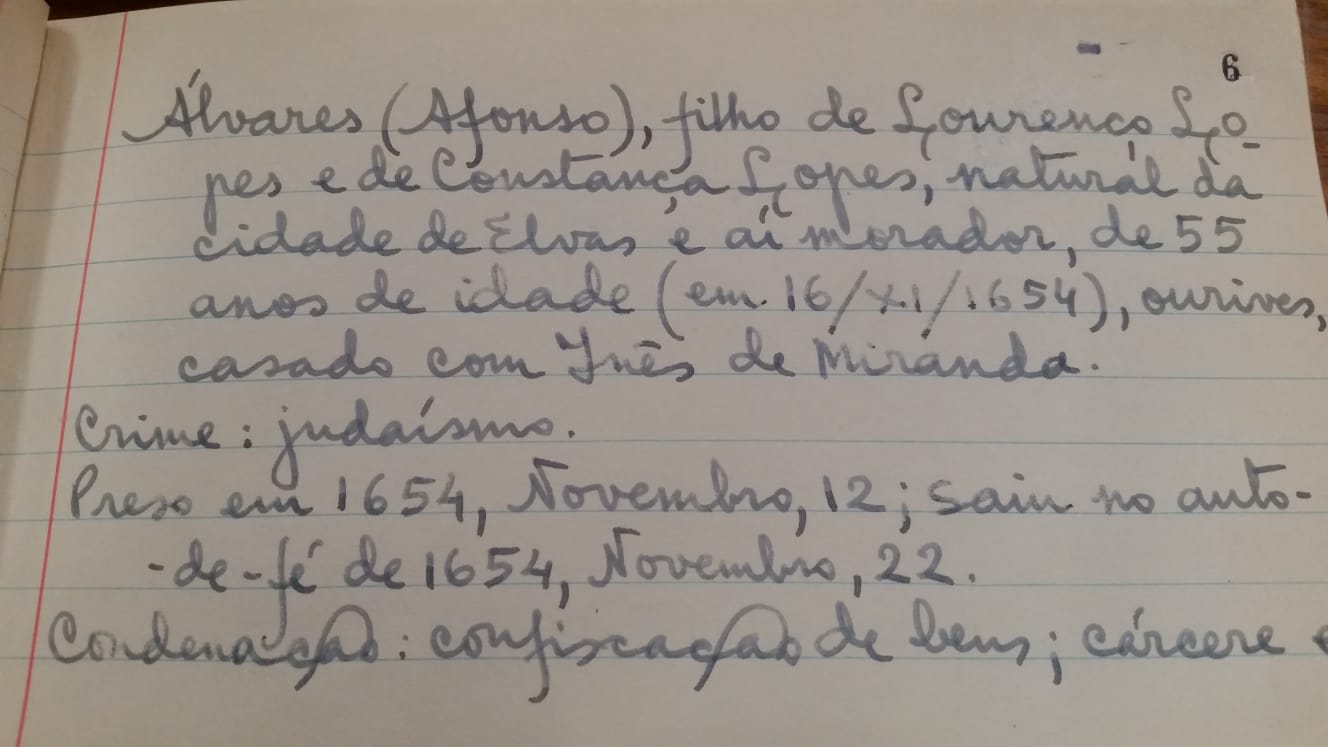 6
Álvares (Afonso), filho de Lourenço Lo-
pes e de Constança Lopes, natural da
cidade de Elvas e aí morador, de 55
anos de idade (em 16/XI/1654), ourives,
casado com Inês de Miranda.
Crime: judaísmo.
Preso em 1654, Novembro, 12; saiu no auto-
-de-fé de 1654, Novembro, 22.
Condenação: confiscação de bens; cárcere e